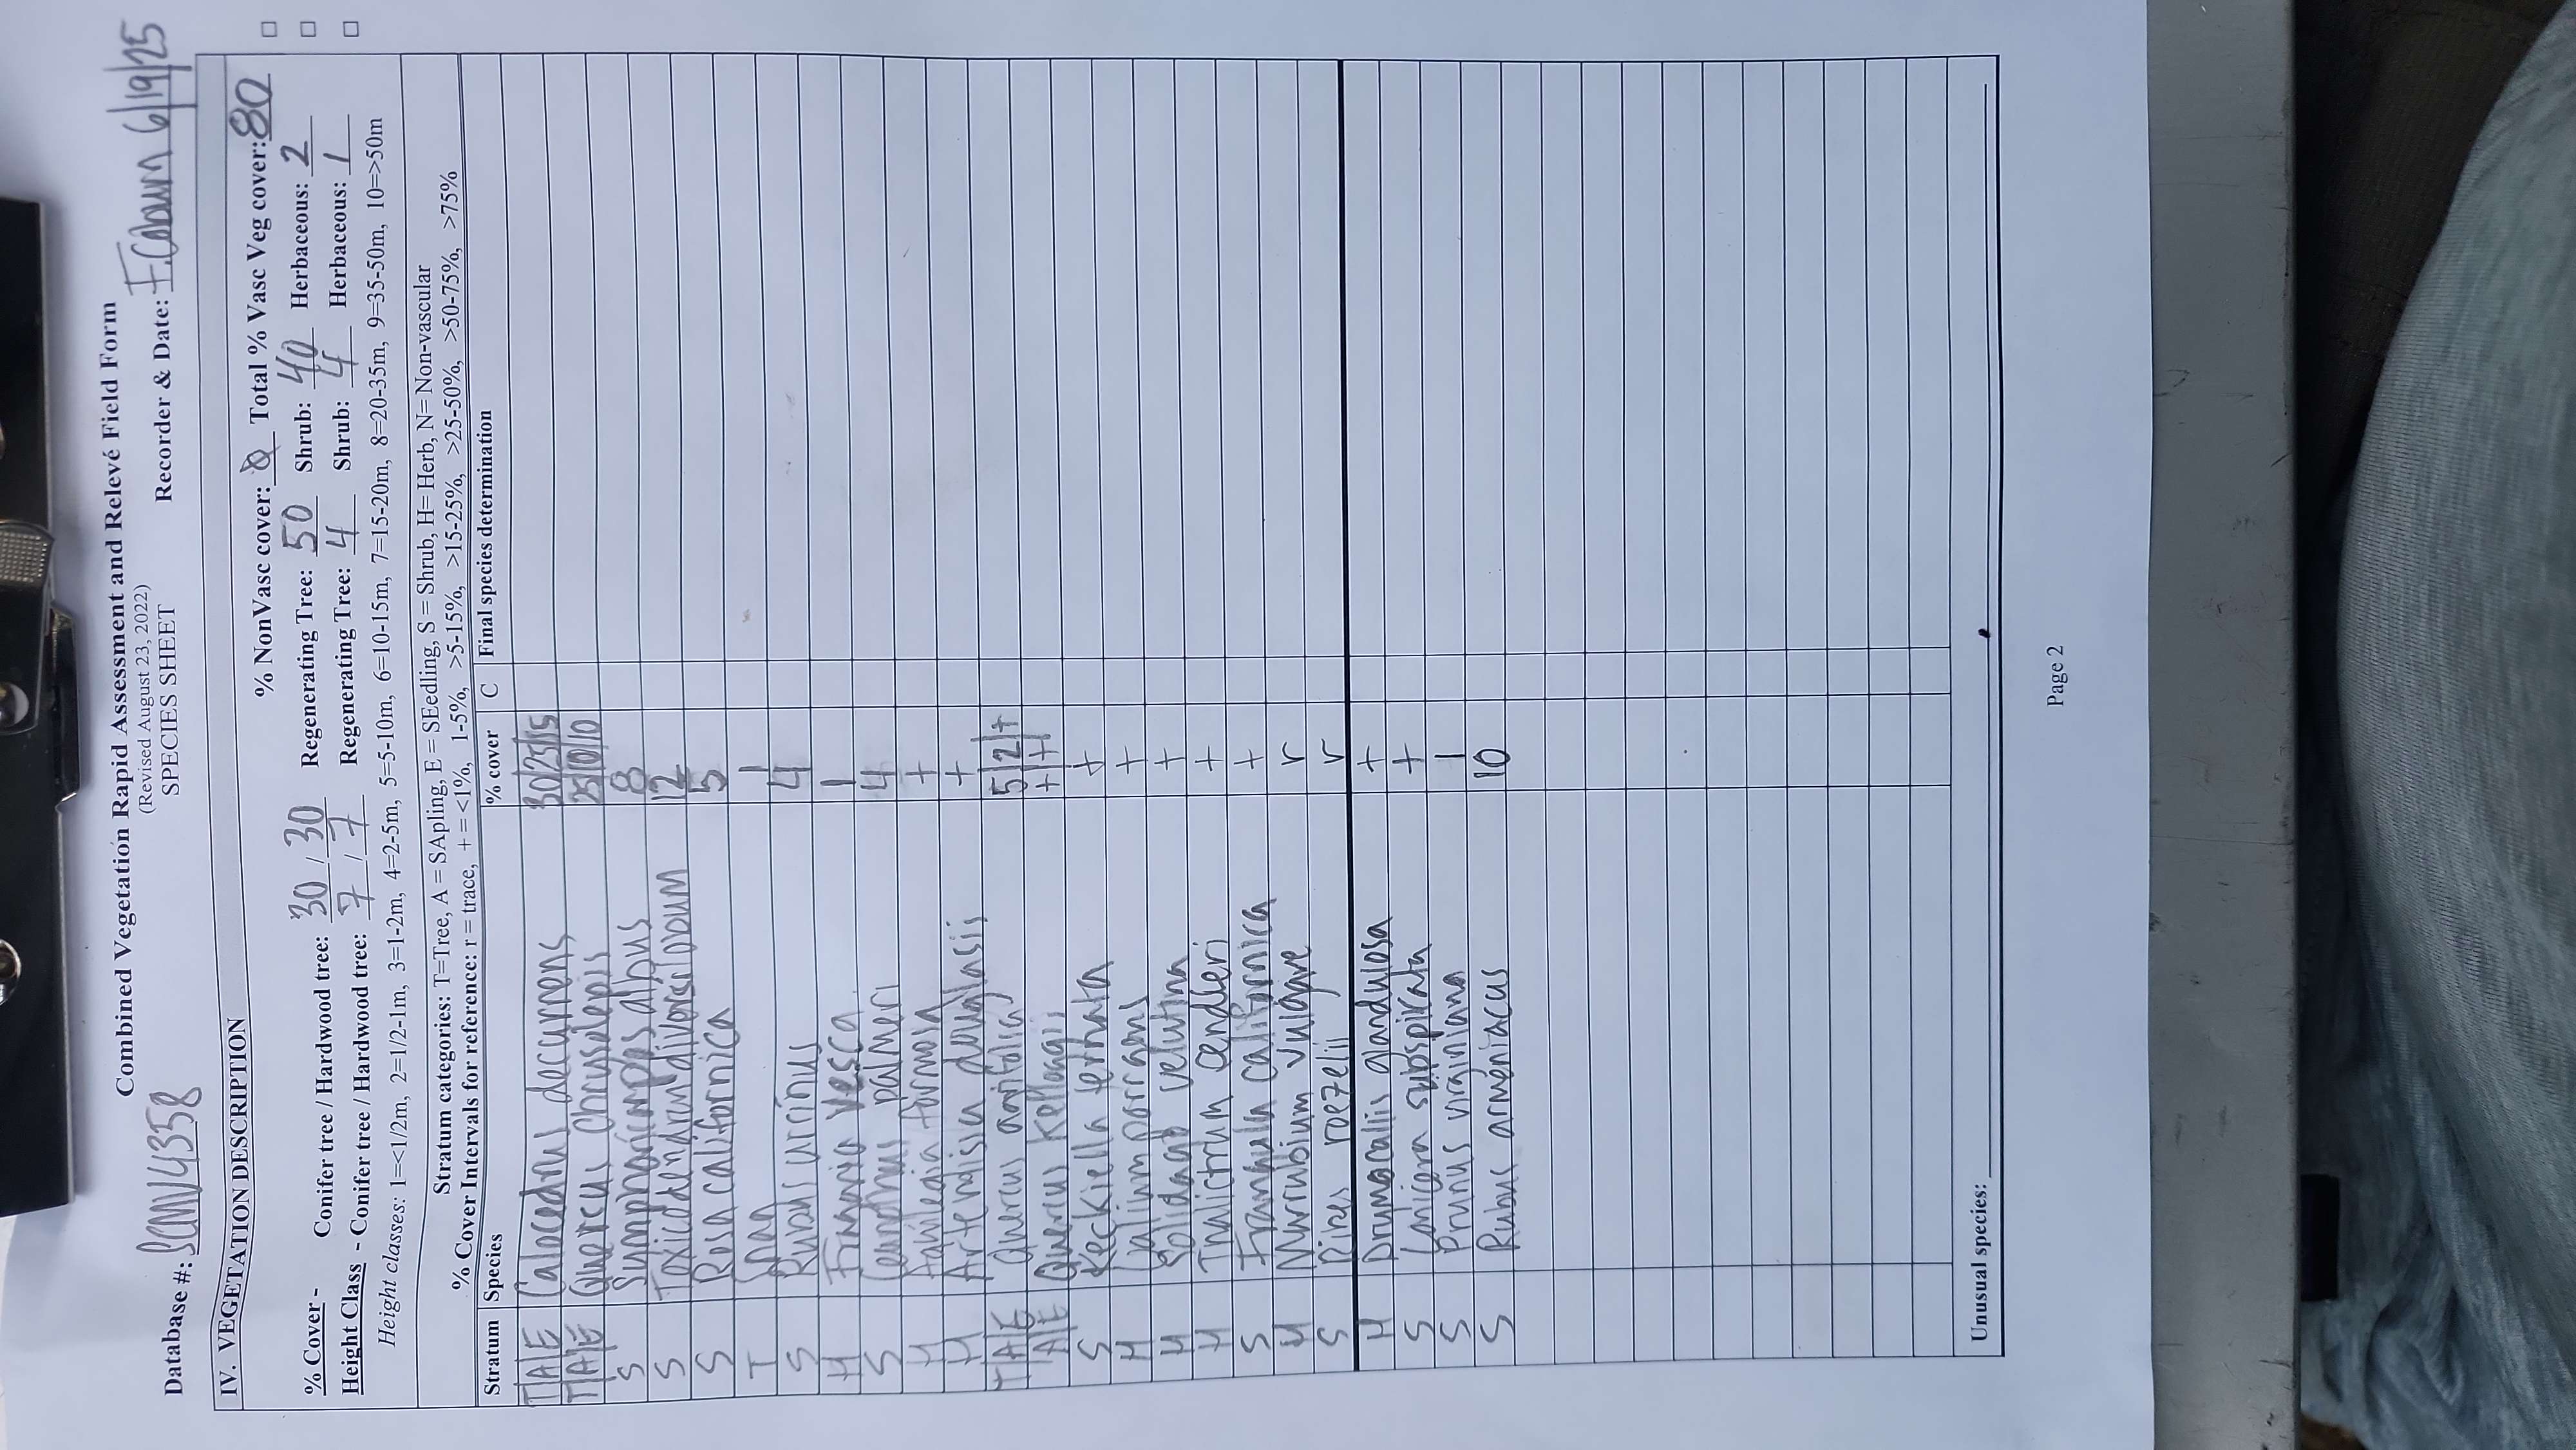 Combined Vegetation Rapid Assessment and Relevé Field Form
(Revised August 23, 2022)
SPECIES SHEET
Database #: SCMV4358 Recorder & Date: 6/19/25
IV. VEGETATION DESCRIPTION
% NonVasc cover: 0 Total % Vasc Veg cover: 80
% Cover - Conifer tree / Hardwood tree: 30 / 30 Regenerating Tree: 50 Shrub: 40 Herbaceous: 2
Height Class - Conifer tree / Hardwood tree: 7 / 7 Regenerating Tree: 4 Shrub: 4 Herbaceous: 1
Height classes: 1=<1/2m, 2=1/2-1m, 3=1-2m, 4=2-5m, 5=5-10m, 6=10-15m, 7=15-20m, 8=20-35m, 9=35-50m, 10=>50m
Stratum categories: T=Tree, A = SApling, E = SEedling, S = Shrub, H= Herb, N= Non-vascular
% Cover Intervals for reference: r = trace, + = <1%, 1-5%, >5-15%, >15-25%, >25-50%, >50-75%, >75%
Stratum Species % cover C Final species determination
T/A/E Calocedrus decurrens 30/25/15
T/A/E Quercus chrysolepis 25/10/10
S Symphoricarpos albus 8
S Toxicodendrum diversilobum 12
S Rosa californica 5
T Snag 1
S Rubus urcinus 4
H Fragaria vesca 1
S Ceanothus palmeri 4
H Aquilegia formosa +
H Artemdisia douglasii +
T/A/E Quercus agrifolia 5/2/+
A/E Quercus kelloggii +/+
S Keckiella ternata +
H Galium porrigens +
H Solidago velutina +
H Thalictrum fendleri +
S Frangula californica +
H Murrubium vulagre r
S Ribes roezelii r
H Drymocallis glandulosa +
S Lonicera subspicata +
S Prunus virginiana 1
S Rubus armeniacus 10
Unusual species:
Page 2